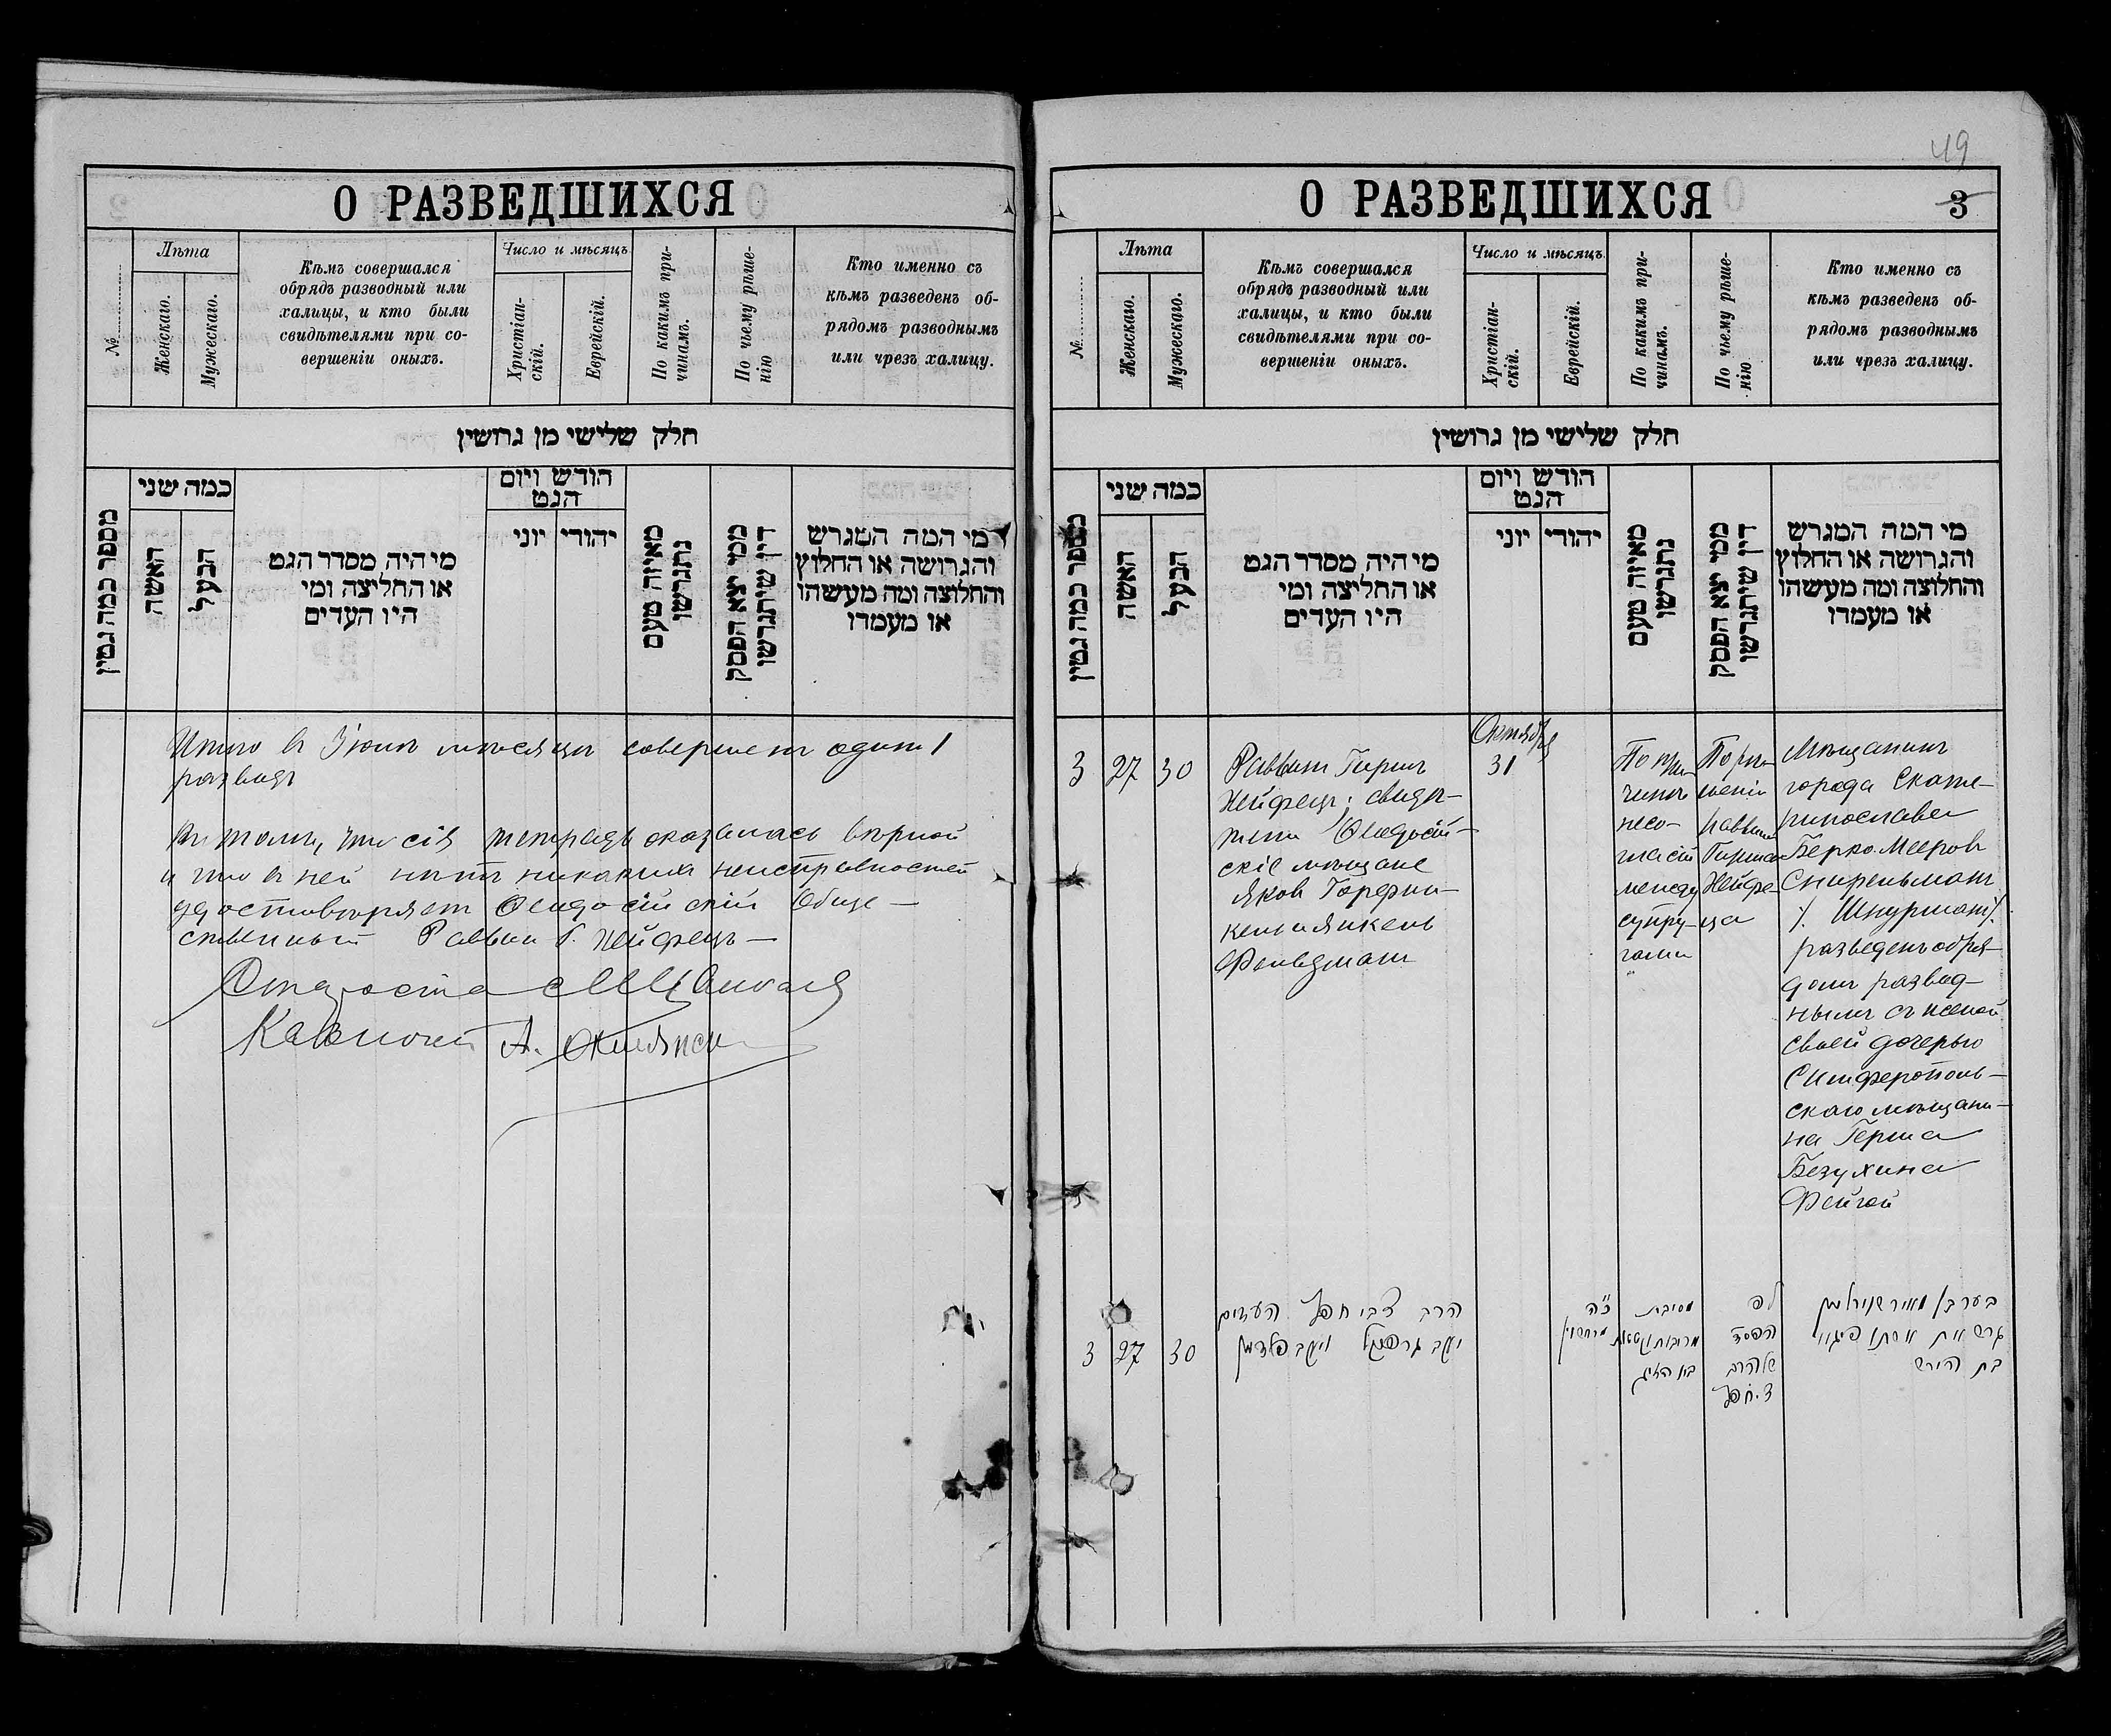 О РАЗВЕДШИХСЯ
№
Лѣта
Женскаго.
Мужескаго.
Кѣмъ совершался
обрядъ разводный или
халицы, и кто были
свидѣтелями при со-
вершеніи оныхъ.
Число и мѣсяцъ
Христіан-
скій.
Еврейскій.
По какимъ при-
чинамъ.
По чьему рѣше-
нію
Кто именно съ
кѣмъ разведенъ об-
рядомъ разводнымъ
или чрезъ халицу.
חלק שלישי מן גרושין
מספר כמה גטין
כמה שני
האשה
הבעל
מי היה מסדר הגט
או החליצה ומי
היו העדים
הודש ויום
הגט
יוני
יהודי
מאיזה טעם
נתגרשו
ממי יצא הפסק
דין שיתגרשו
מי המה המגרש
והגרושה או החלוץ
והחלוצה ומה מעשהו
או מעמדו
Итого въ Іюнѣ мѣсяцѣ совершенъ одинъ 1
разводъ
Въ томъ, что сія тетрадь оказалась вѣрной
и что въ ней нѣтъ никакихъ неисправностей
удостовѣряетъ Ѳеодосійскій Обще-
ственный Раввинъ Г. Хейфецъ
Староста
Казначей А.
49
О РАЗВЕДШИХСЯ
3
№
Лѣта
Женскаго.
Мужескаго.
Кѣмъ совершался
обрядъ разводный или
халицы, и кто были
свидѣтелями при со-
вершеніи оныхъ.
Число и мѣсяцъ
Христіан-
скій.
Еврейскій.
По какимъ при-
чинамъ.
По чьему рѣше-
нію.
Кто именно съ
кѣмъ разведенъ об-
рядомъ разводнымъ
или чрезъ халицу.
חלק שלישי מן גרושין
מספר כמה גטין
כמה שני
האשה
הבעל
מי היה מסדר הגט
או החליצה ומי
היו העדים
הודש ויום
הגט
יוני
יהודי
מאיזה טעם
נתגרשו
ממי יצא הפסק
דין שיתגרשו
מי המה המגרש
והגרושה או החלוץ
והחלוצה ומה מעשהו
או מעמדו
3
27
30
Раввинъ Гиршъ
Хейфецъ; свидѣ-
тели Ѳеодосій-
скіе мѣщане
Яковъ Гарфин-
кель и Янкель
Фельдманъ
Октября
31
По при-
чинѣ
несо-
гласій
между
супру-
гами
По рѣ-
шенію
раввина
Гирша
Хейфе-
ца
Мѣщанинъ
города Екате-
ринославa
Берко Мееровъ
Шнурманъ
разведенъ обря-
домъ развод-
нымъ съ женой
своей дочерью
Симферополь-
скаго мѣщани-
на Герша
Безухина
Фейгой
3
27
30
הרב צבי חפץ העדים
יעקב גרפינקל ויעקב פלדמן
כ"ה
מרחשון
מסיבת
לפי
הפסד
של הרב
צ. חפץ
בערקו מאיר שנורמן
גרש את אשתו פיגא
בת הירש